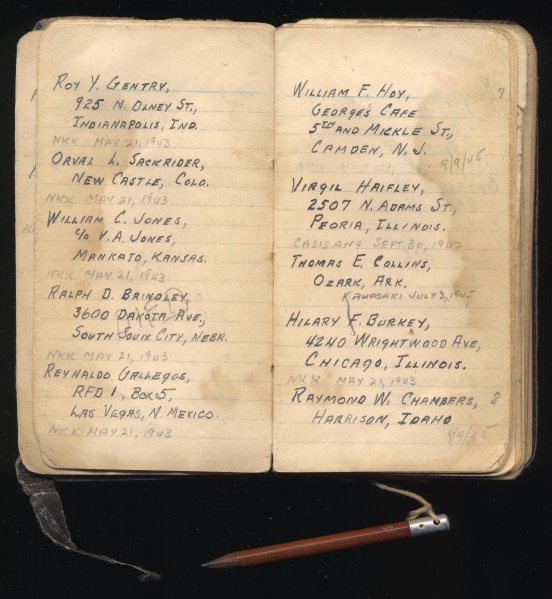 Roy Y. Gentry,
925 N. Olney St.,
Indianapolis, Ind.
NKK May 21, 1943
Orval L. Sackrider,
New Castle, Colo.
NKK May 21, 1943
William C. Jones,
c/o V. A. Jones,
Mankato, Kansas.
NKK May 21, 1943
Ralph D. Brindley,
3600 Dakota Ave.,
South Souix City, Nebr.
NKK May 21, 1943
Reynaldo Gallegos,
RFD 1, Box 5,
Las Vegas, N. Mexico.
NKK May 21, 1943
7
William F. Hoy,
George's Cafe
and Mickle St.,
Camden, N. J.
9/9/45
Virgil Haifley,
2507 N. Adams St.,
Peoria, Illinois.
Casisang Sept. 30, 1942
Thomas E. Collins,
Ozark, Ark.
Kawasaki July 3, 1945
Hilary F. Burkey,
4240 Wrightwood Ave,
Chicago, Illinois.
NKK May 21, 1943
Raymond W. Chambers, 8
Harrison, Idaho